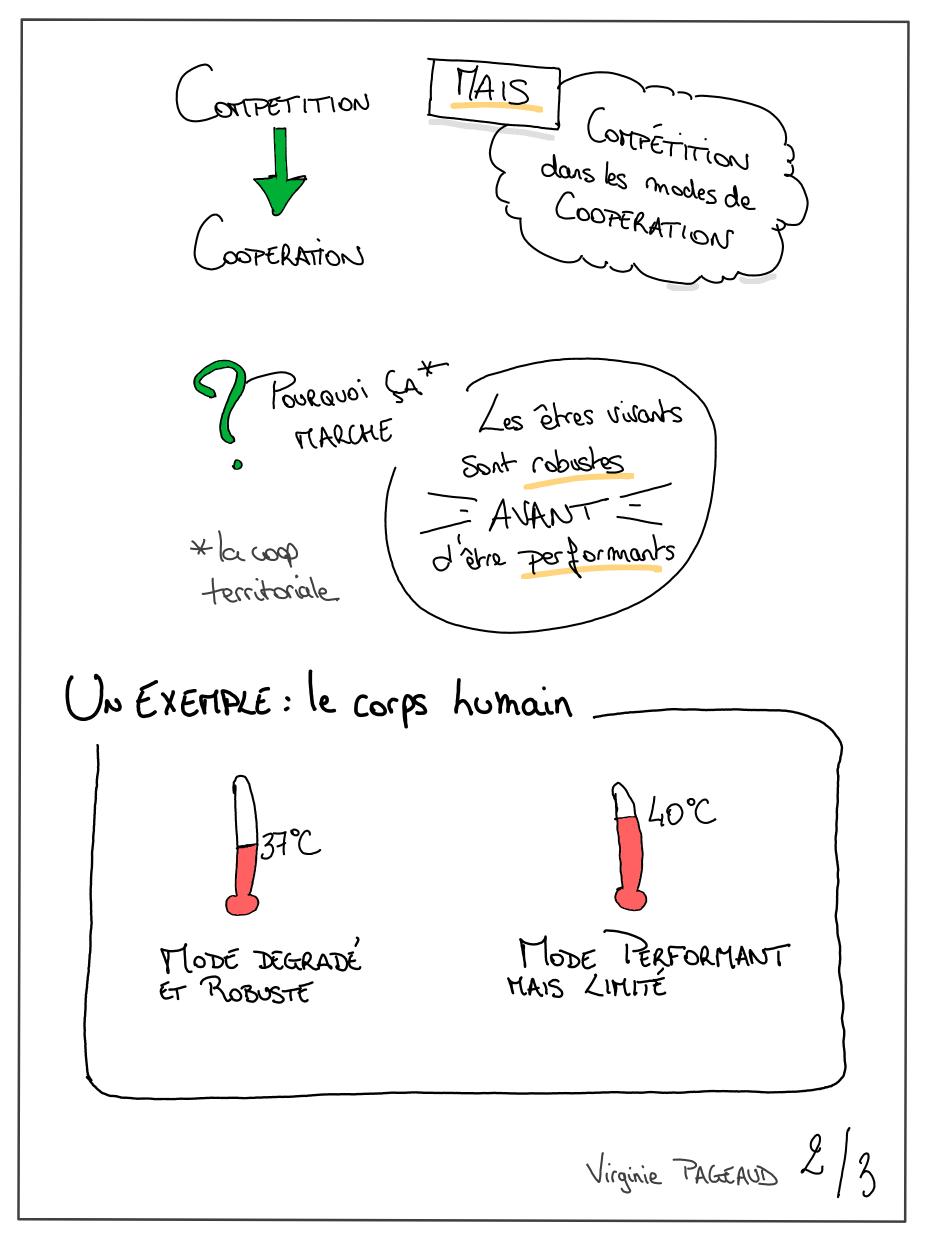 COMPETITION
COOPERATION
MAIS
COMPÉTITION
dans les modes de
COOPERATION
? POURQUOI ÇA*
MARCHE
*la coop
territoriale
Les êtres vivants
sont robustes
AVANT
d'être performants
UN EXEMPLE : le corps humain
37°C
MODE DEGRADÉ
ET ROBUSTE
40°C
MODE PERFORMANT
MAIS LIMITÉ
Virginie PAGEAUD 2/3